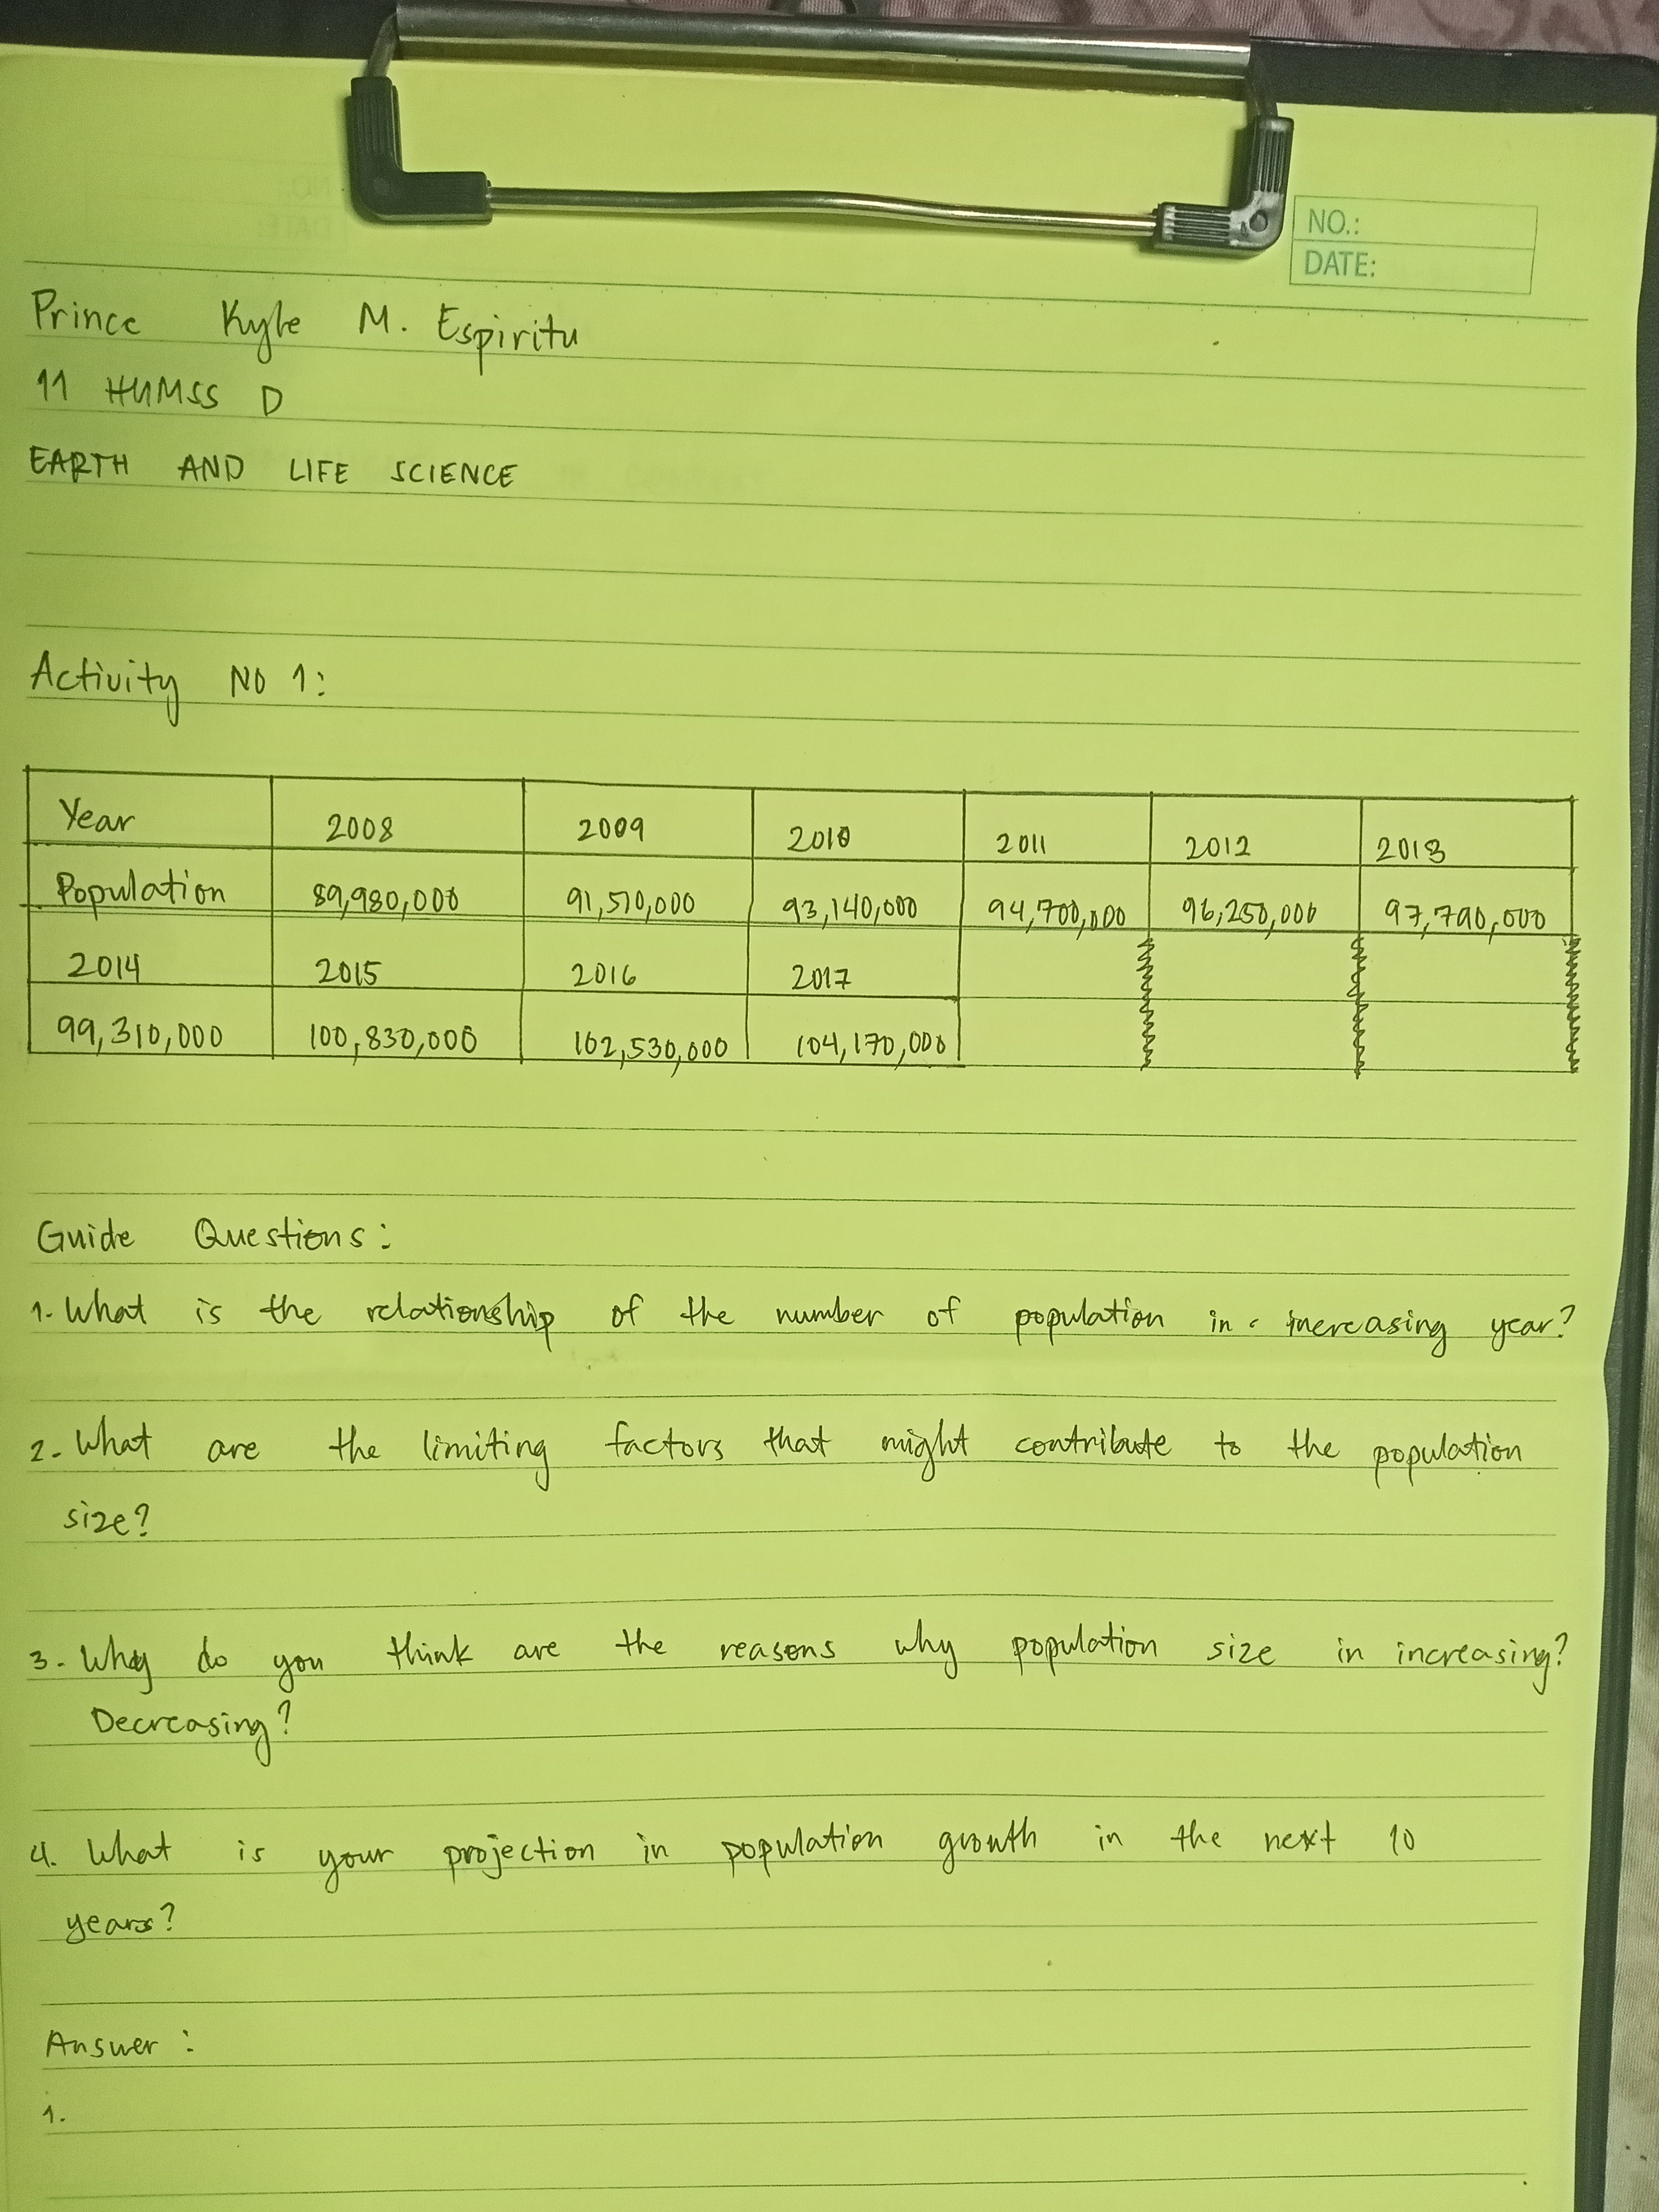 NO.:
DATE:
Prince Kyle M. Espiritu
11 HUMSS D
EARTH AND LIFE SCIENCE
Activity NO 1:
Year 2008 2009 2010 2011 2012 2013
Population 89,980,000 91,510,000 93,140,000 94,700,000 96,250,000 97,790,000
2014 2015 2016 2017
99,310,000 100,830,000 102,530,000 104,170,000
Guide Questions:
1. What is the relationship of the number of population in increasing year?
2. What are the limiting factors that might contribute to the population
size?
3. Why do you think are the reasons why population size in increasing?
Decreasing?
4. What is your projection in population growth in the next 10
years?
Answer :
1.